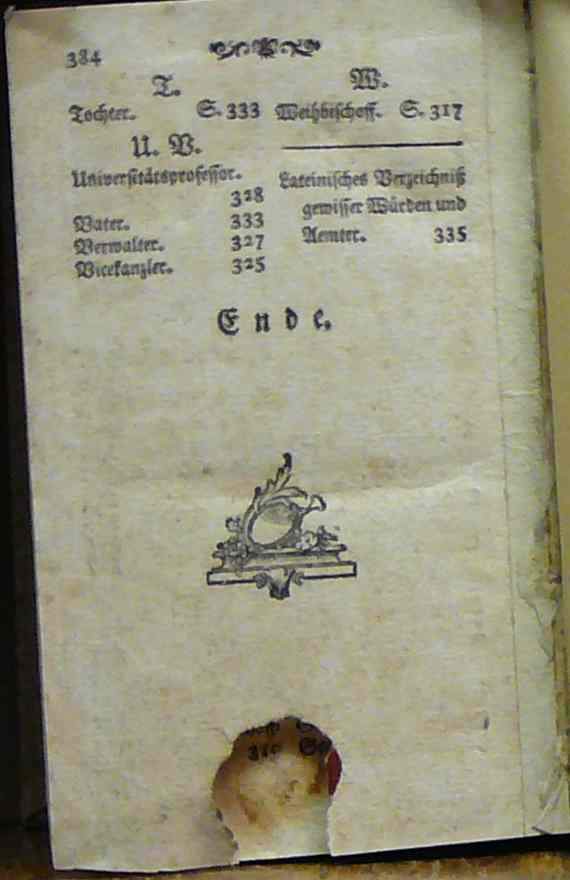 384
T.
Tochter. S. 333
U. V.
Universitätsprofessor.
328
Vater. 333
Verwalter. 327
Vicekanzler. 325
W.
Weihbischoff. S. 317
Lateinisches Verzeichniß
gewisser Würden und
Aemter. 335
Ende.
310